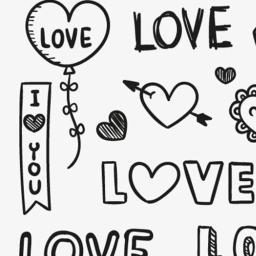 LOVE
LOVE
I
YOU
LOVE
LOVE